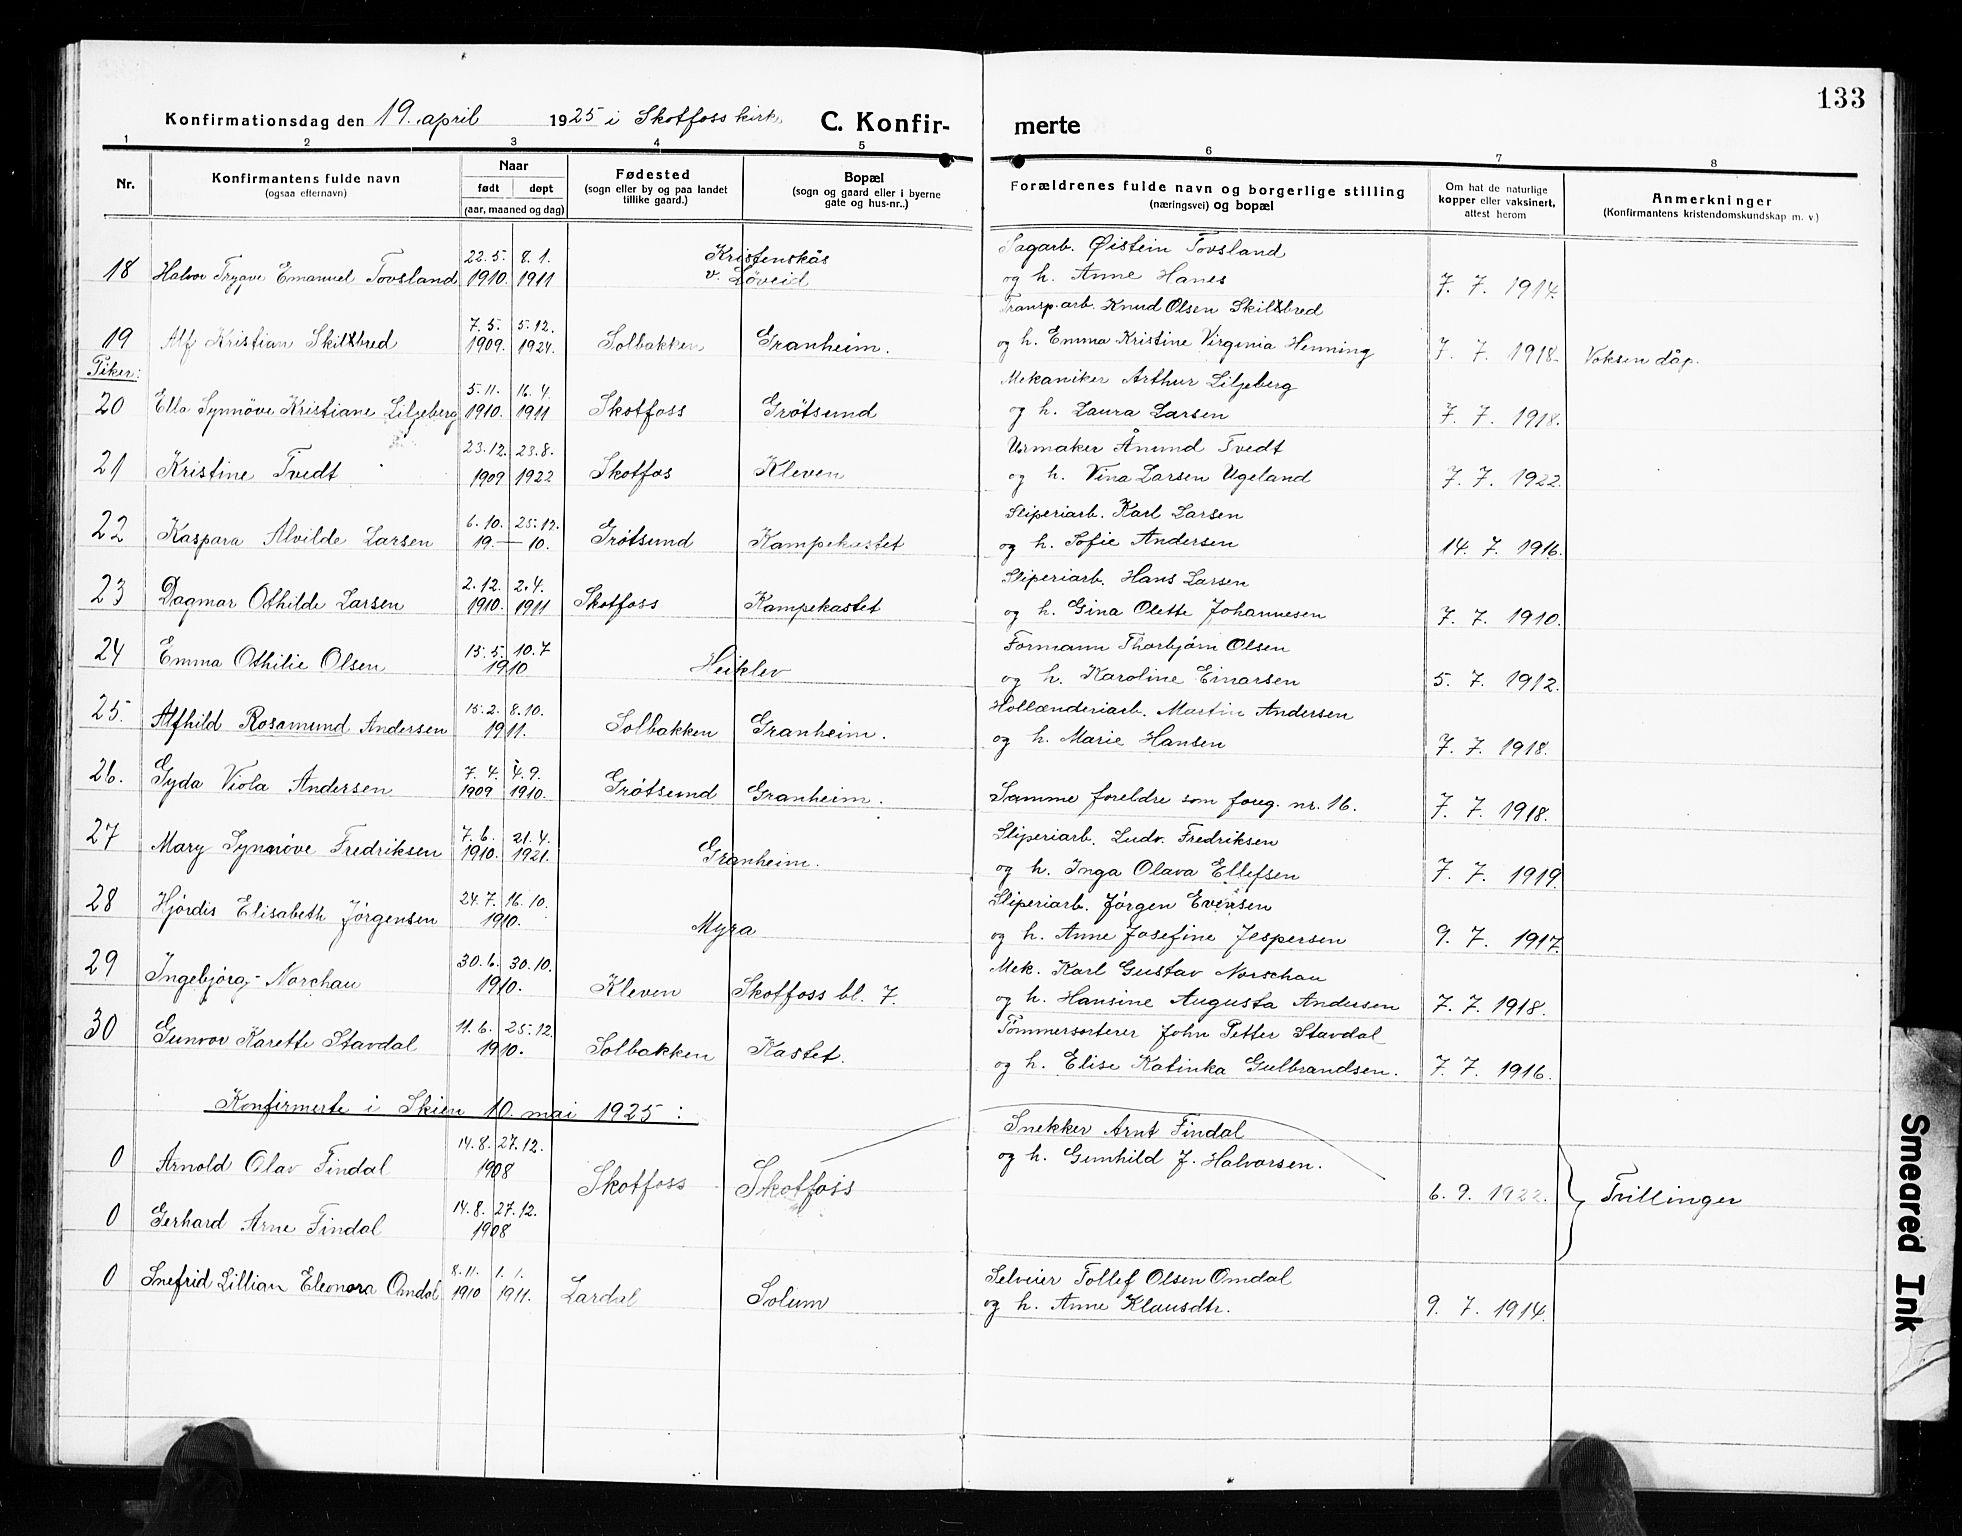 133
Konfirmationsdag den 19. april 1925 i Skotfoss kirke
C. Konfir-
merte
1 2 3 4 5 6 7 8
Nr.
Konfirmantens fulde navn
(ogsaa efternavn)
Naar
født døpt
(aar, maaned og dag)
Fødested
(sogn eller by og paa landet
tillike gaard.)
Bopæl
(sogn og gaard eller i byerne
gate og hus-nr..)
Forældrenes fulde navn og borgerlige stilling
(næringsvei) og bopæl
Om hat de naturlige
kopper eller vaksinert,
attest herom
Anmerkninger
(Konfirmantens kristendomskundskap m. v.)
22.5. 8.1. Kristenskås Sagarb. Øistein Tovsland
18 Halvor Trygve Emanuel Tovsland 1910. 1911 v. Løveid og h. Anne Hanes 7. 7. 1914.
7.5. 5.12. Transp.arb. Knud Olsen Skilbred
19 Alf Kristian Skilbred 1909. 1924. Solbakken Granheim. og h. Emma Kristine Virginia Henning 7. 7. 1918. Voksen dåp.
Piker:
5.11. 16.4. Mekaniker Arthur Liljeberg
20 Ella Synnöve Kristiane Liljeberg 1910. 1911 Skotfoss Grötsund og h. Laura Larsen 7. 7. 1918.
23.12. 23.8. Urmaker Ånund Tvedt
21 Kristine Tvedt 1909 1922 Skotfos Kleven og h. Vina Larsen Ugeland 7. 7. 1922.
6.10. 25.12. Sliperiarb. Karl Larsen
22 Kaspara Alvilde Larsen 19.—10. Grötsund Kampekastet og h. Sofie Andersen 14. 7. 1916.
2.12. 2.4. Sliperiarb. Hans Larsen
23 Dagmar Othilde Larsen 1910. 1911 Skotfoss Kampekastet og h. Gina Olette Johannesen 7. 7. 1910.
15.5. 10.7 Formann Thorbjörn Olsen
24 Emma Othilie Olsen 1910 Heiklev og h. Karoline Einarsen 5. 7. 1912.
15.2. 8.10. Hollænderiarb. Martin Andersen
25. Alfhild Rosamund Andersen 1911. Solbakken Granheim. og h. Marie Hansen 7. 7. 1918.
7.4. 4.9.
26. Gyda Viola Andersen 1909 1910. Grötsund Granheim. Samme foreldre som foreg. nr. 16. 7. 7. 1918.
7.6. 21.4. Sliperiarb. Ludv. Fredriksen
27 Mary Synnöve Fredriksen 1910. 1921. Granheim. og h. Inga Olava Ellefsen 7. 7. 1919.
24.7. 16.10. Sliperiarb. Jörgen Evensen
28 Hjördis Elisabeth Jörgensen 1910. Myra og h. Anne Josefine Jespersen 9. 7. 1917.
30.6. 30.10. Mek. Karl Gustav Norschau
29 Ingebjörg Norchau 1910. Kleven Skotfoss bl. 7. og h. Hansine Augusta Andersen 7. 7. 1918.
11.6. 25.12. Tömmersorterer John Petter Stavdal
30 Gunvor Karette Stavdal 1910. Solbakken Kastet. og h. Elise Katinka Gulbrandsen. 7. 7. 1916.
Konfirmerte i Skien 10. mai 1925:
14.8. 27.12. Snekker Arnt Findal
0 Arnold Olav Findal 1908 Skotfoss Skotfoss og h. Gunhild J. Halvorsen. 6. 9. 1922. Tvillinger
14.8. 27.12.
0 Gerhard Arne Findal 1908
8.11. 1.1. Selveier Tollef Olsen Omdal
0 Snefrid Lillian Eleonora Omdal 1910 1911. Lardal Solum og h. Anne Klausdtr. 9. 7. 1914.
Smeared Ink